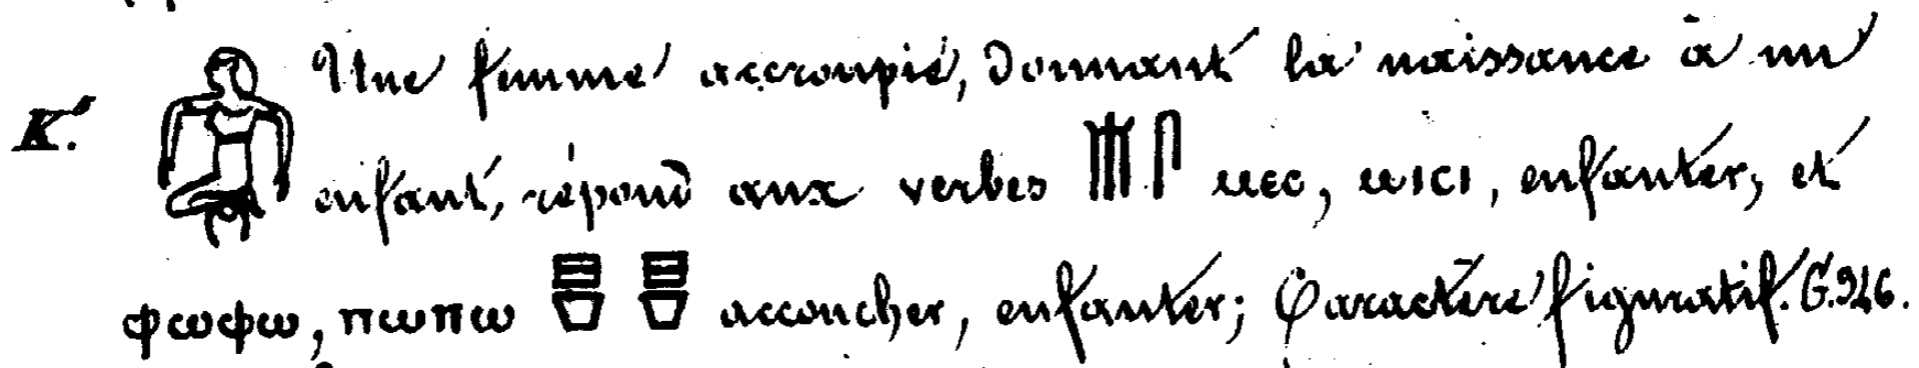 K. 𓁒 Une femme accroupie, donnant la naissance à un
enfant, répond aux verbes 𓄟𓋴 ⲙⲉⲥ, ⲙⲓⲥⲓ, enfanter, et
ⲫⲱⲫⲱ, ⲡⲱⲡⲱ accoucher, enfanter; Caractère figuratif. G. 946.